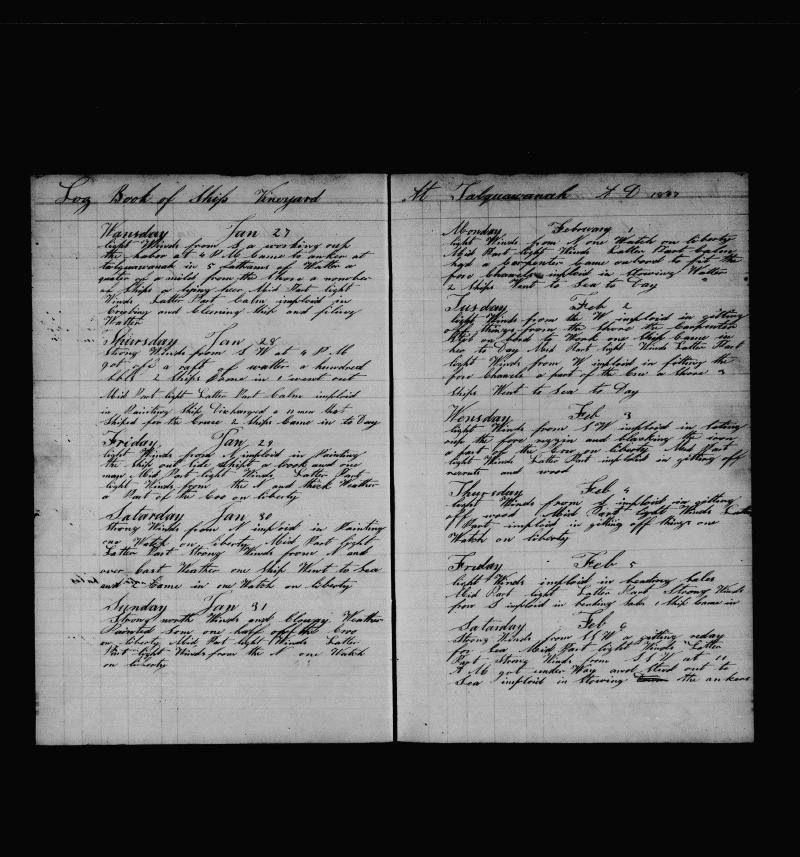 Log Book of Ship Vineyard
Wansday Jan 27
light Winds from S a working oup
the habor at 4 P M Came to anker at
talquawanah in 5 fathams of Watter a
quater of a mild from the Shore a nomber
of Ships a lying heer Mid Part light
Winds Latter Part Calm imploid in
and Cleening Ship and filing
Watter
Thursday Jan 28
Strong Winds from S W at 4 P M
got off a raft of watter a hundred
bbls 2 Ships Came in 1 went out
Mid Part light Latter Part Calm imploid
in Painting Ship Discharged a 11 men that
Shiped for the Cruse 2 Ships Came in to Day
Friday Jan 29
light Winds from N imploid in Painting
the Ship out Side Shipt a Cook and one
man Mid Part light Winds Latter Part
light Winds from the N and thick Weather
a Part of the Cro on liberty
Satarday Jan 30
Strong Winds from N imploid in Painting
one Watch on liberty Mid Part light
Latter Part Strong Winds from N and
over Cast Weather one Ship Went to Sea
and 2 Came in one Watch on liberty
Sunday Jan 31
Strong north Winds and Clouay Weather
Som one half off the Cro
on liberty Mid Part light Winds Latter
Part light Winds from the N one Watch
on liberty
At Talquawanah A D 1837
Monday Februay 1
light Winds from N one Watch on liberty
Mid Part light Winds Latter Part Calm
had a Carpenter Came onbord to fit the
fore Chanels imploid in Stowing Watter
2 Ships Went to Sea to Day
Tusday Feb 2
light Winds from the W imploid in gitting
off things from the Shore the Carpenter
on bord to Work one Ship Came in
her to Day Mid Part light Winds Latter Part
light Winds from W imploid in fitting the
fore Chanels a part of the Cro on Shore 3
Ships Went to Sea to Day
Wensday Feb 3
light Winds from S W imploid in
oup the fore riggin and blacking the iron
a part of the Cro on liberty Mid Part
light Winds Latter Part imploid in gitting off
recruts and wood
Thursday Feb 4
light Winds from S imploid in gitting
off wood Mid Part light Winds Latter
Part imploid in gitting off things one
Watch on liberty
Friday Feb 5
light Winds imploid in bending Sales
Mid Part light Latter Part Strong Winds
from S imploid in bending Sales 1 Ship Came in
Satarday Feb 6
Strong Winds from S S W a gitting reday
for Sea Mid Part light Winds Latter
Part Strong Winds from S S W at 11
A M got under Way and Stud out to
Sea imploid in Stowing the ankers